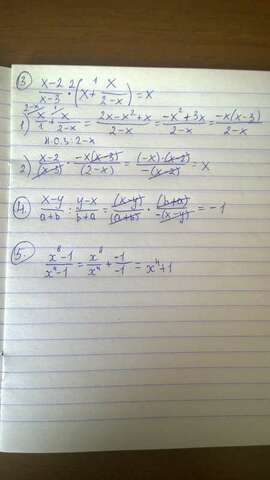 ③ (x-2)/(x-3) ²·(x + ¹ x/(2-x)) = x
1) ²⁻ˣ x/1 + ¹ x/(2-x) = (2x-x²+x)/(2-x) = (-x²+3x)/(2-x) = (-x(x-3))/(2-x)
Н.О.З: 2-x
2) (x-2)/(x-3) · (-x(x-3))/(2-x) = ((-x)·(x-2))/(-(x-2)) = x
④. (x-y)/(a+b) : (y-x)/(b+a) = (x-y)/(a+b) · (b+a)/(-(x-y)) = -1
⑤. (x⁸-1)/(x⁴-1) = x⁸/x⁴ + (-1)/(-1) = x⁴+1